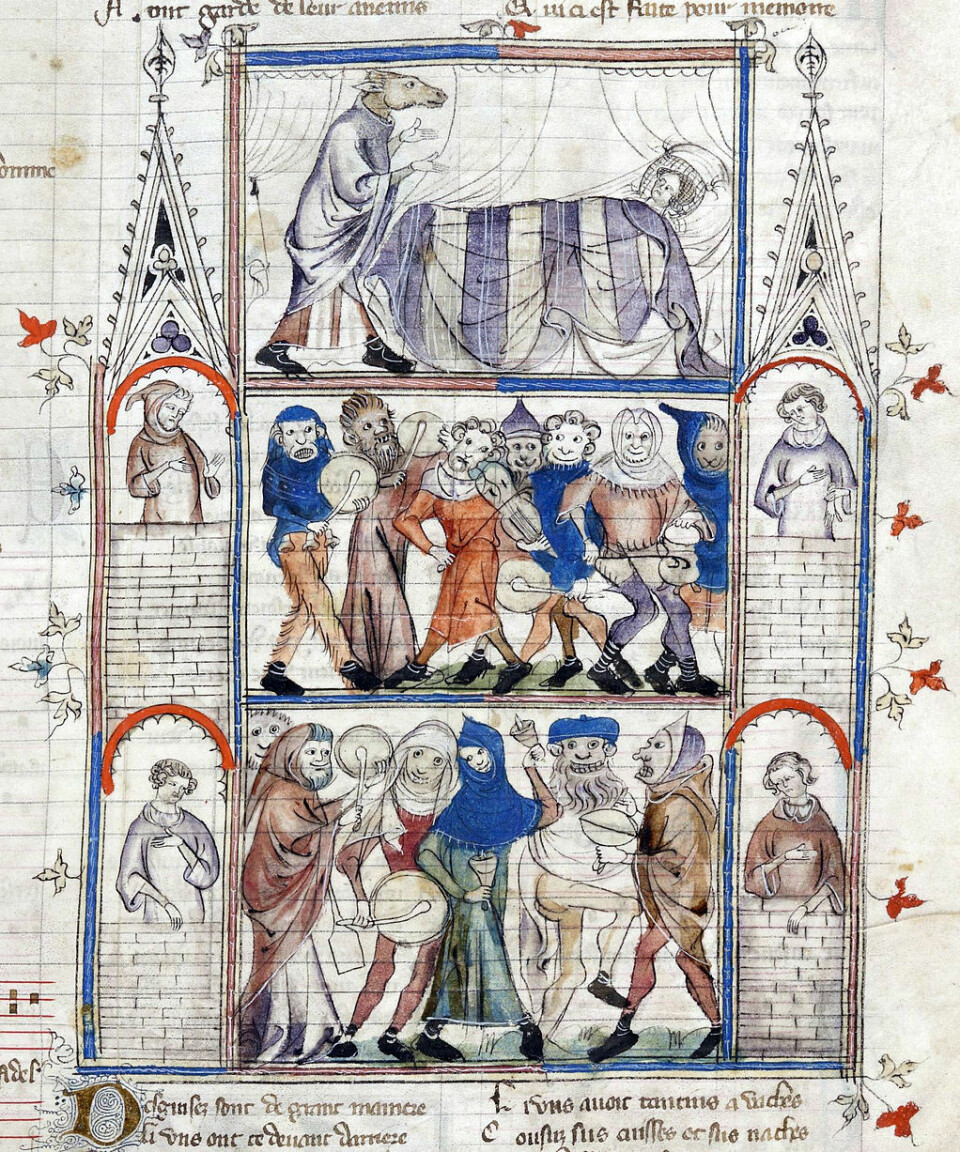 ont garde de leur anemis
Qui ci est faite pour memoire
Desguisez sont de grant maniere
Li vns ont ce deuant darriere
Li vns auoit tantins a vaches
Cousuz sus cuisses et sus naches